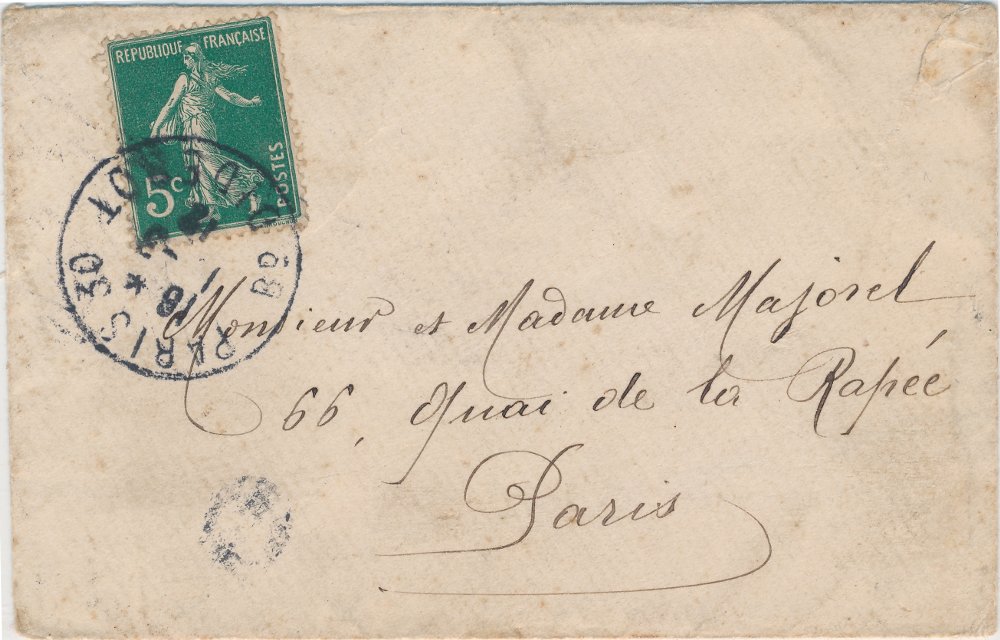 REPUBLIQUE FRANÇAISE
POSTES
5c
PARIS 30
Monsieur et Madame Majorel
66, Quai de la Rapée
Paris